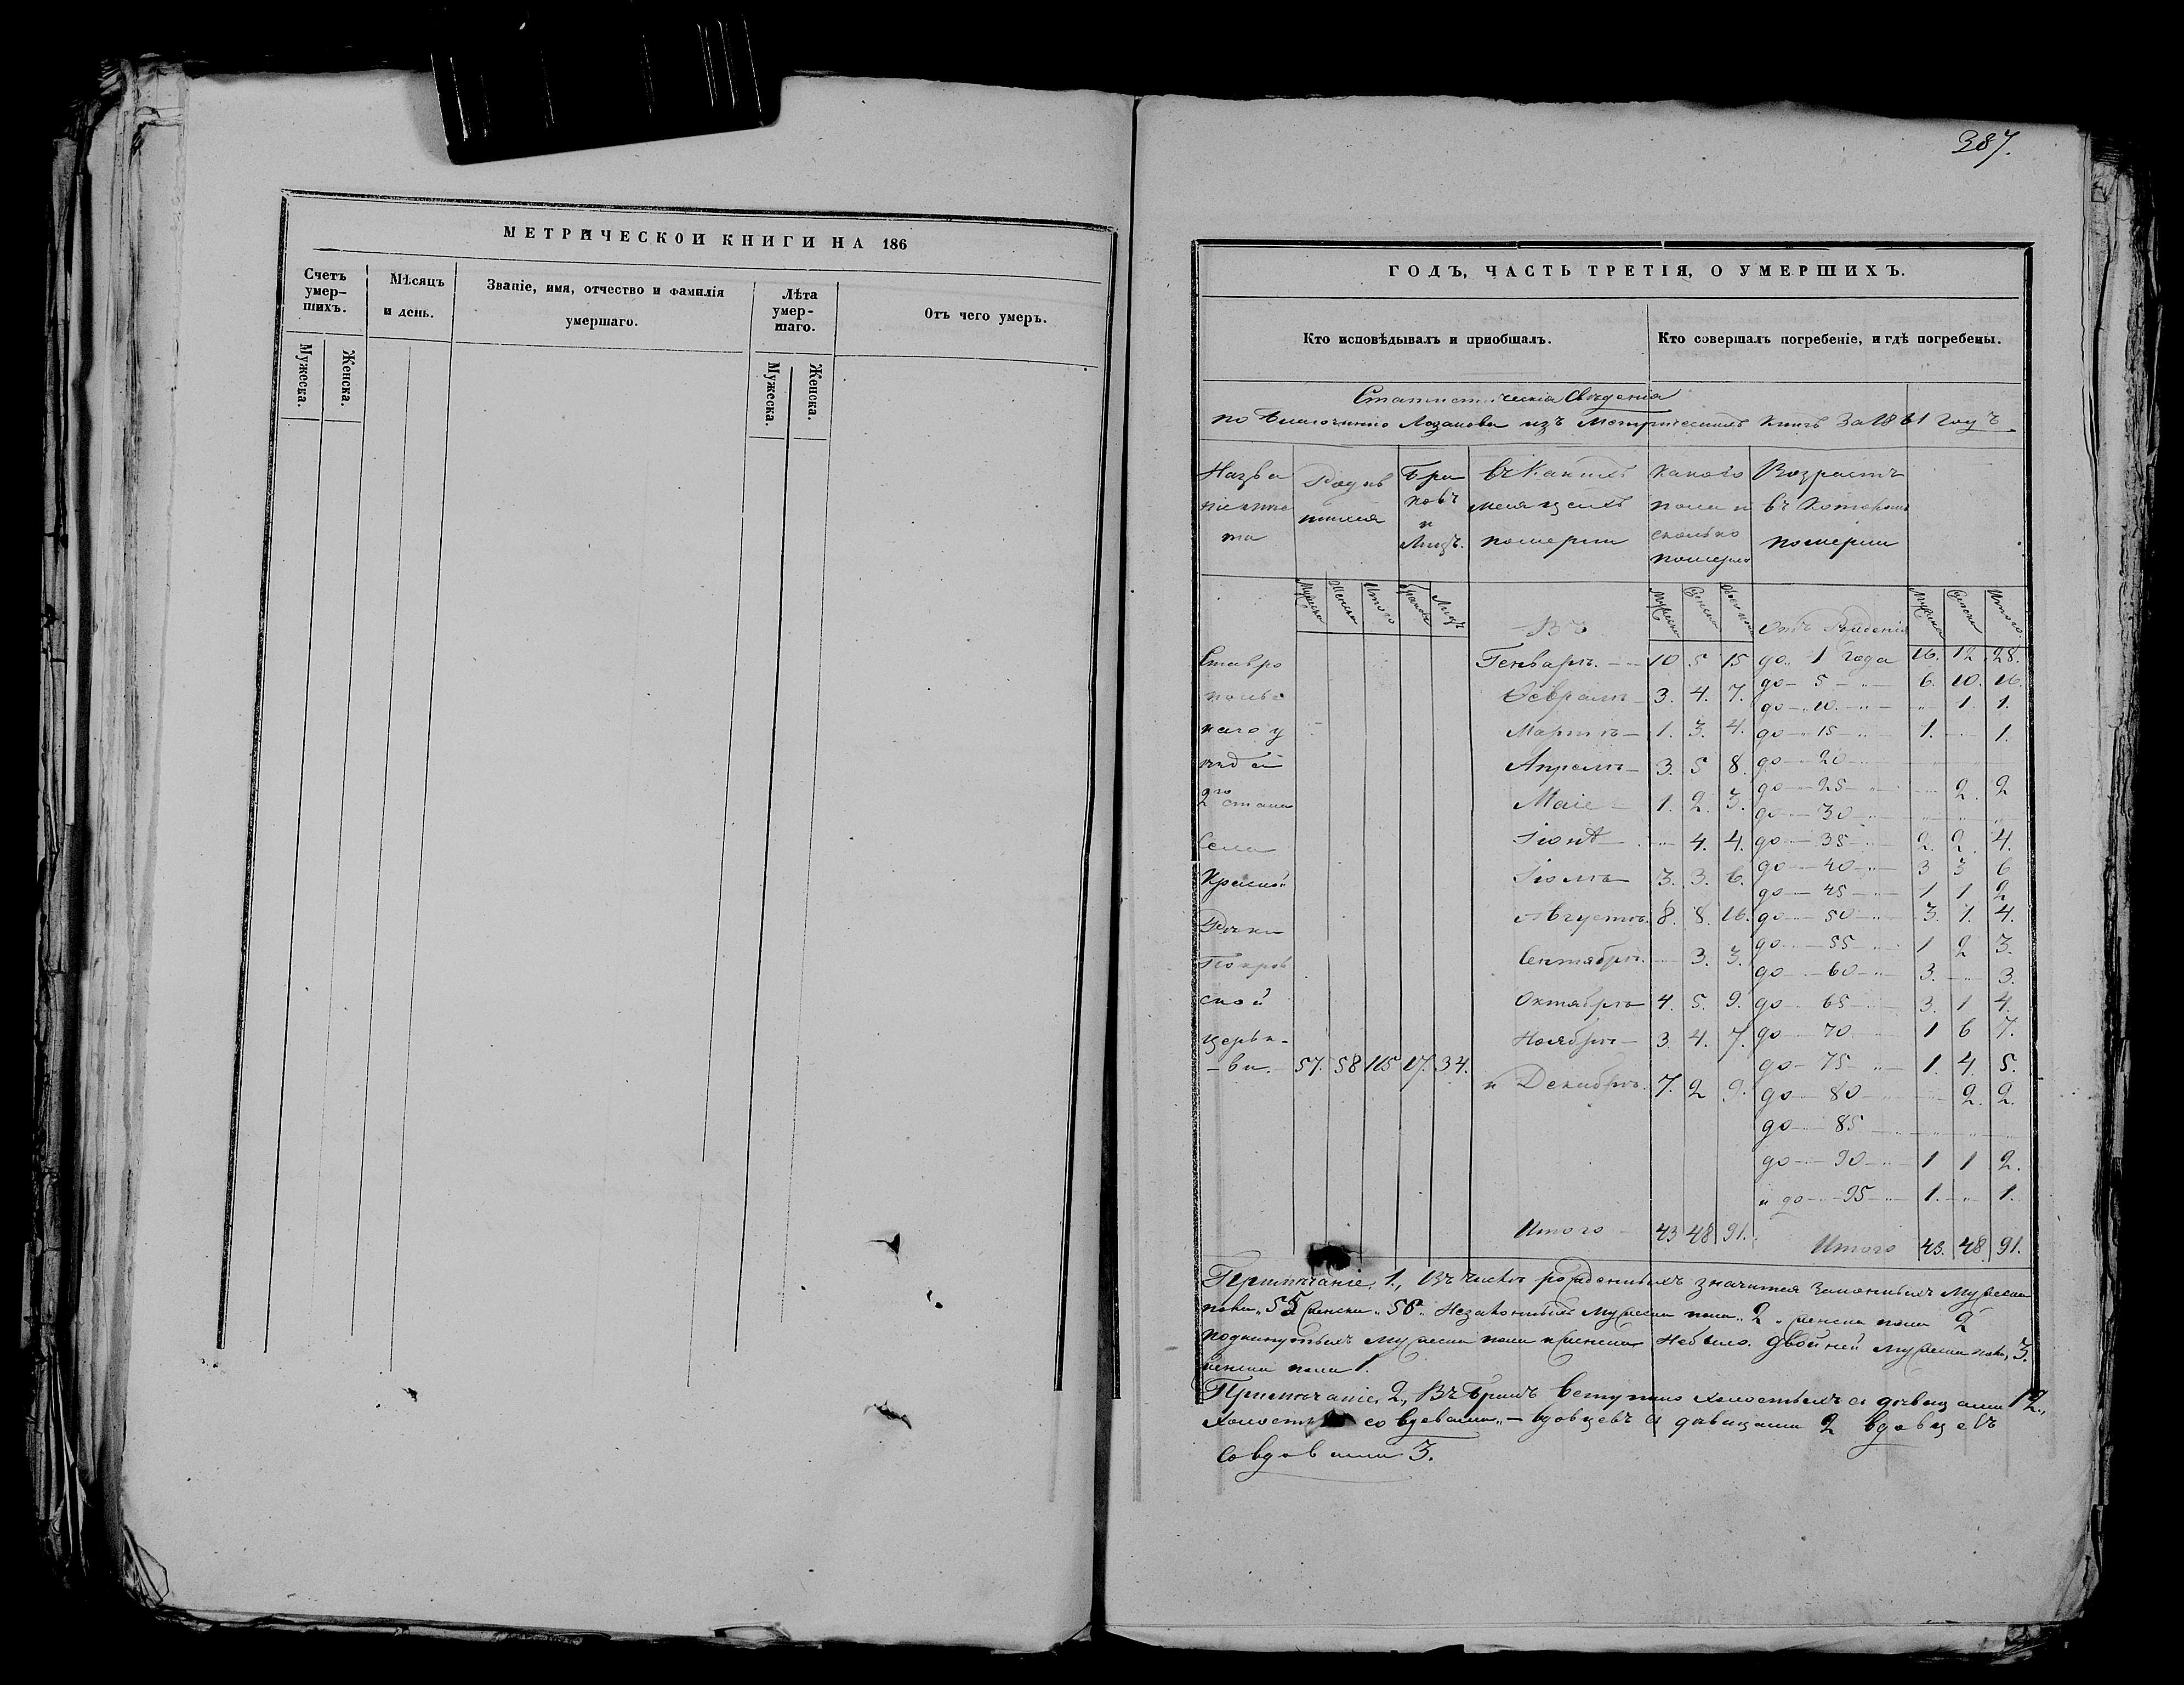 МЕТРИЧЕСКОЙ КНИГИ НА 186
Счетъ умер-шихъ.
Мѣсяцъ и день.
Званіе, имя, отчество и фамилія умершаго.
Лѣта умер-шаго.
Отъ чего умеръ.
Мужеска. Женска. Мужеска. Женска.
387.
ГОДЪ, ЧАСТЬ ТРЕТІЯ, О УМЕРШИХЪ.
Кто исповѣдывалъ и пріобщалъ.
Кто совершалъ погребеніе, и гдѣ погребены.
Статистическія Свѣденія
по Благочинію Лозанова изъ Метрическихъ книгъ За 1861 Годъ
Назва
ніе мѣс
та
Родив
шихся
Бра
ковъ
и
Лицъ.
въ Какихъ
месяцехъ
померли
какого
пола и
сколько
померло
Возрастъ
въ Которомъ
померли
Мужска Женска Итого Браковъ Лицъ
Въ
Мужска Женска Обоего пола
Отъ Рожденія
Мужска Женска Итого.
Ставро
польс
каго у
езда
2го стана
Села
Красной
Речки
Покров
ской
церьк-
-ви. 57. 58 115 17. 34.
Генваре. 10 5 15
Феврале 3. 4. 7.
Марте 1. 3. 4.
Апреле 3. 5 8.
Маіе 1. 2. 3.
Іюне 4. 4.
Іюле 3. 3. 6.
Августе. 8. 8. 16.
Сентябре. 3. 3.
Октябре 4. 5. 9.
Ноябре 3. 4. 7.
и Декабре. 7. 2 9.
Итого 43 48 91.
до 1 года 16. 12. 28.
до 5 6. 10. 16.
до 10. 1. 1.
до 15 1. 1.
до 20
до 25 2. 2
до 30
до 35 2. 2. 4.
до 40 3 3 6
до 45 1 1 2
до 50 3. 1. 4.
до 55 1 2 3.
до 60 3. 3.
до 65 3. 1 4.
до 70 1 6 7.
до 75 1. 4. 5.
до 80 2. 2.
до 85
до 90 1 1 2.
и до 95 1. 1.
Итого 43. 48 91.
Примѣчаніе. 1., Въ числѣ рожденныхъ значится Законныхъ Мужеска
пола „55 женска „56„ Незаконныхъ Мужеска пола „2„ женска пола 2
подкинутыхъ Мужеска пола и женска Небыло. Двойней Мужеска пола, 3.
женска пола 1.
Примѣчаніе, 2., Въ Бракъ Вступило холостыхъ съ дѣвицами 12.,
со вдовами „ — вдовцевъ съ дѣвицами 2 вдовцевъ
Совдовами 3.